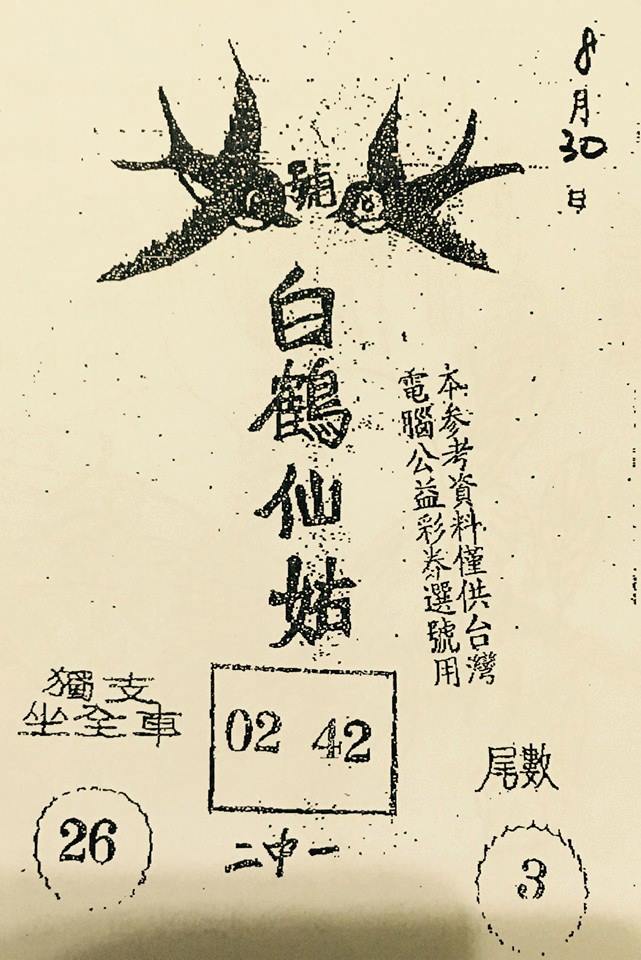 8月30日
號
白鶴仙姑
本参考資料僅供台灣
電腦公益彩券選號用
獨支
坐全車
26
02 42
二中一
尾數
3